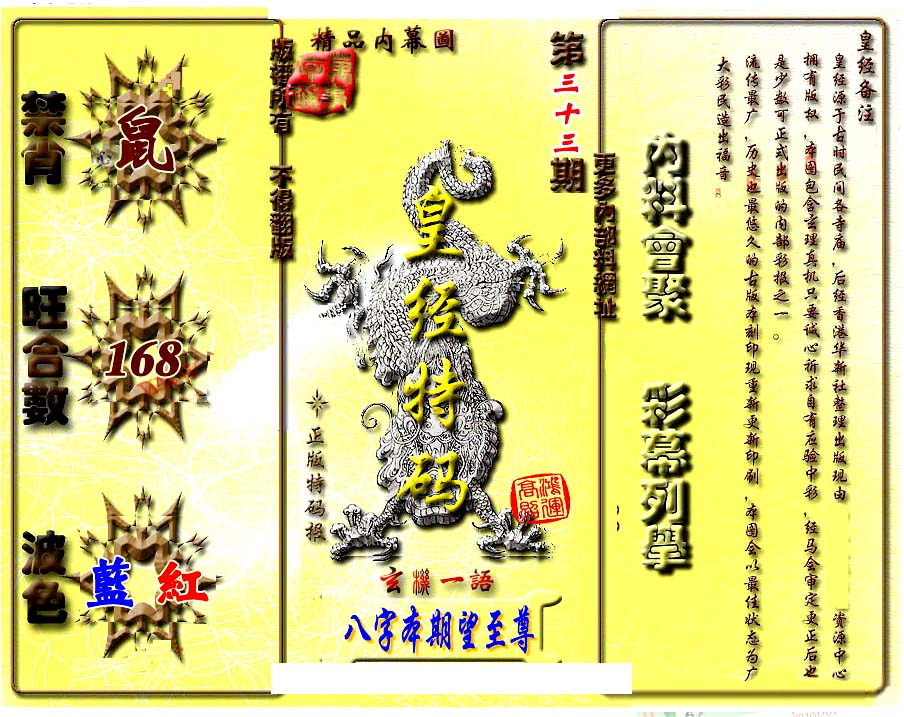 精品內幕圖
第三十三期
版權所有　不得翻版
更多內部料網址
禁肖
鼠
旺合數
168
波色
藍 紅
皇经特码
正版特码报
鴻運高照
玄機一語
八字本期望至尊
內料會聚
彩幕列舉
皇经备注
皇经源于古时民间各寺庙，后经香港华新社整理出版现由 资源中心
拥有版权，本图包含玄理真机只要诚心祈求自有应验中彩，经马会审定更正后也
是少数可正式出版的内部彩报之一。
流传最广，历史也最悠久的古版本刻印现重新更新印刷，本图会以最佳状态为广
大彩民造出福音